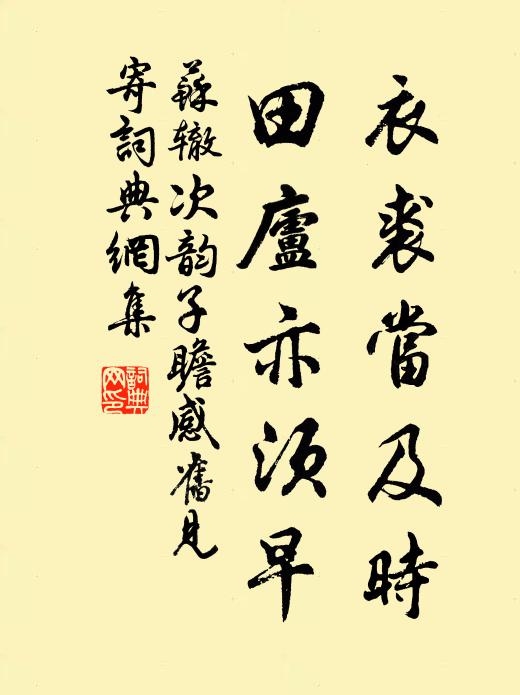 衣裘當及時
田廬亦須早
蘇辙次韵子瞻感舊見
寄詞典網集
詞典
网印